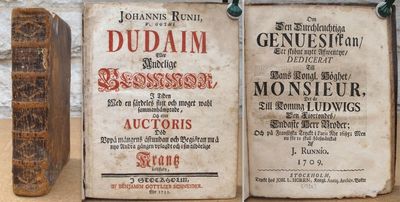 JOHANNIS RUNII,
V. GOTHI
DUDAIM
Eller
Andelige
Blommor,
I Tiden
Med en särdeles flijt och moget wahl
sammanhämtade,
Och efter
AUCTORIS
Död
Uppå mångens åstundan och Begäran nu å
nyo Andra gången uplagde och uti en tidörlige
Krantz
I STOCKHOLM,
af BENJAMIN GOTTLIEB SCHNEIDER.
Om
Den Durchleuchtiga
GENUESIskan/
Ett skönt nytt Afwentyr,
DEDICERAT
Till
Hans Kongl. Höghet/
MONSIEUR,
Det är
Till Konung LUDWIGS
Den Fiortondes,
Endaste Herr Broder;
Och på Franska Tryckt i Paris Åhr 1685; Men
nu för en skull försvänskat
Af
J. RUNNIO.
1709.
STOCKHOLM,
Tryckt hos JOH. L. HORRN, Kongl. Antiq. Archiv. Boktr